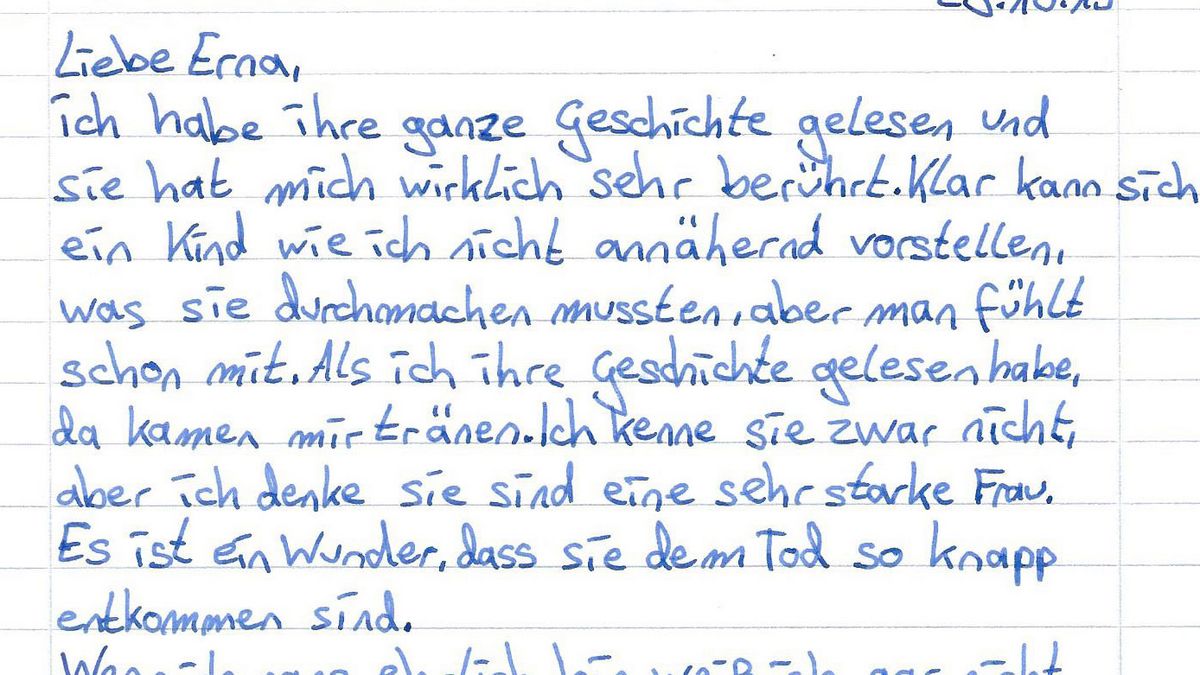 Liebe Erna,
ich habe ihre ganze Geschichte gelesen und
sie hat mich wirklich sehr berührt. Klar kann sich
ein Kind wie ich nicht annähernd vorstellen,
was sie durchmachen mussten, aber man fühlt
schon mit. Als ich ihre Geschichte gelesen habe,
da kamen mir tränen. Ich kenne sie zwar nicht,
aber ich denke sie sind eine sehr starke Frau.
Es ist ein Wunder, dass sie dem Tod so knapp
entkommen sind.
Wenn ich ganz ehrlich bin weiß ich gar nicht